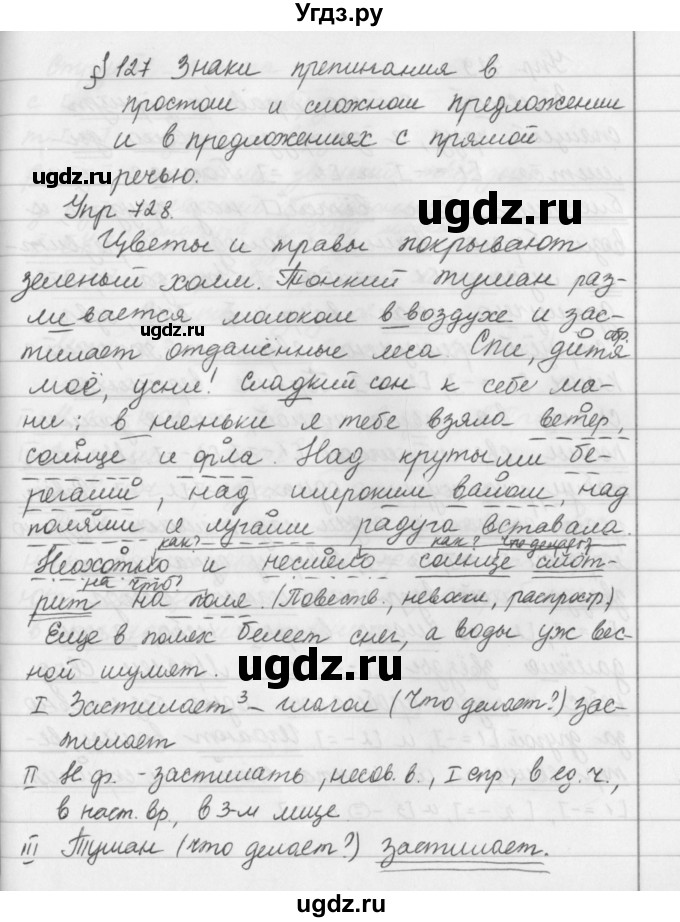 Угдз.ру
§ 127 Знаки препинания в
простом и сложном предложении
и в предложениях с прямой
речью.
ugdz.ru
Упр 728.
ugdz.ru
Цветы и травы покрывают
зеленый холм. Тонкий туман раз-
ливается молоком в воздухе и зас-
ugdz.ru
обр.
тилает отдалённые леса. Спи, дитя
моё, усни! Сладкий сон к себе ма-
ни: в няньки я тебе взяла ветер,
солнце и орла. Над крутыми бе-
регами, над широким валом, над
полями и лугами радуга вставала.
как? как? что делает?
Неохотно и несмело солнце смот-
на что?
рит на поля. (Повеств., невоскл, распростр)
Еще в полях белеет снег, а воды уж вес-
ной шумят.
ugdz.ru
I Застилает³ – глагол (Что делает?) зас-
тилает
II Н.ф. - застилать, несов. в., I спр, в ед. ч.,
в наст. вр, в 3-м лице
III Туман (что делает?) застилает.
ugdz.ru
ugdz.ru